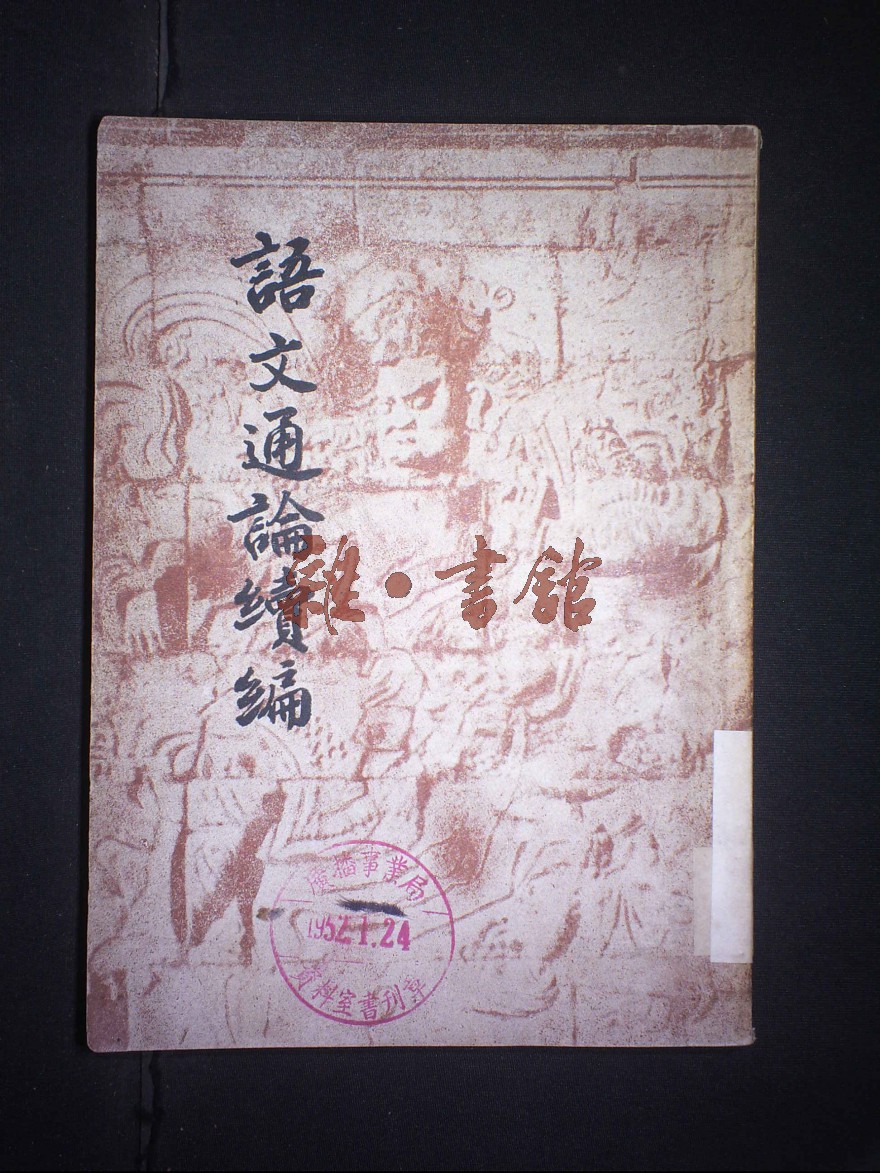 語文通論續編
雜·書館
廣播事業局
1952.1.24
資料室書刊章